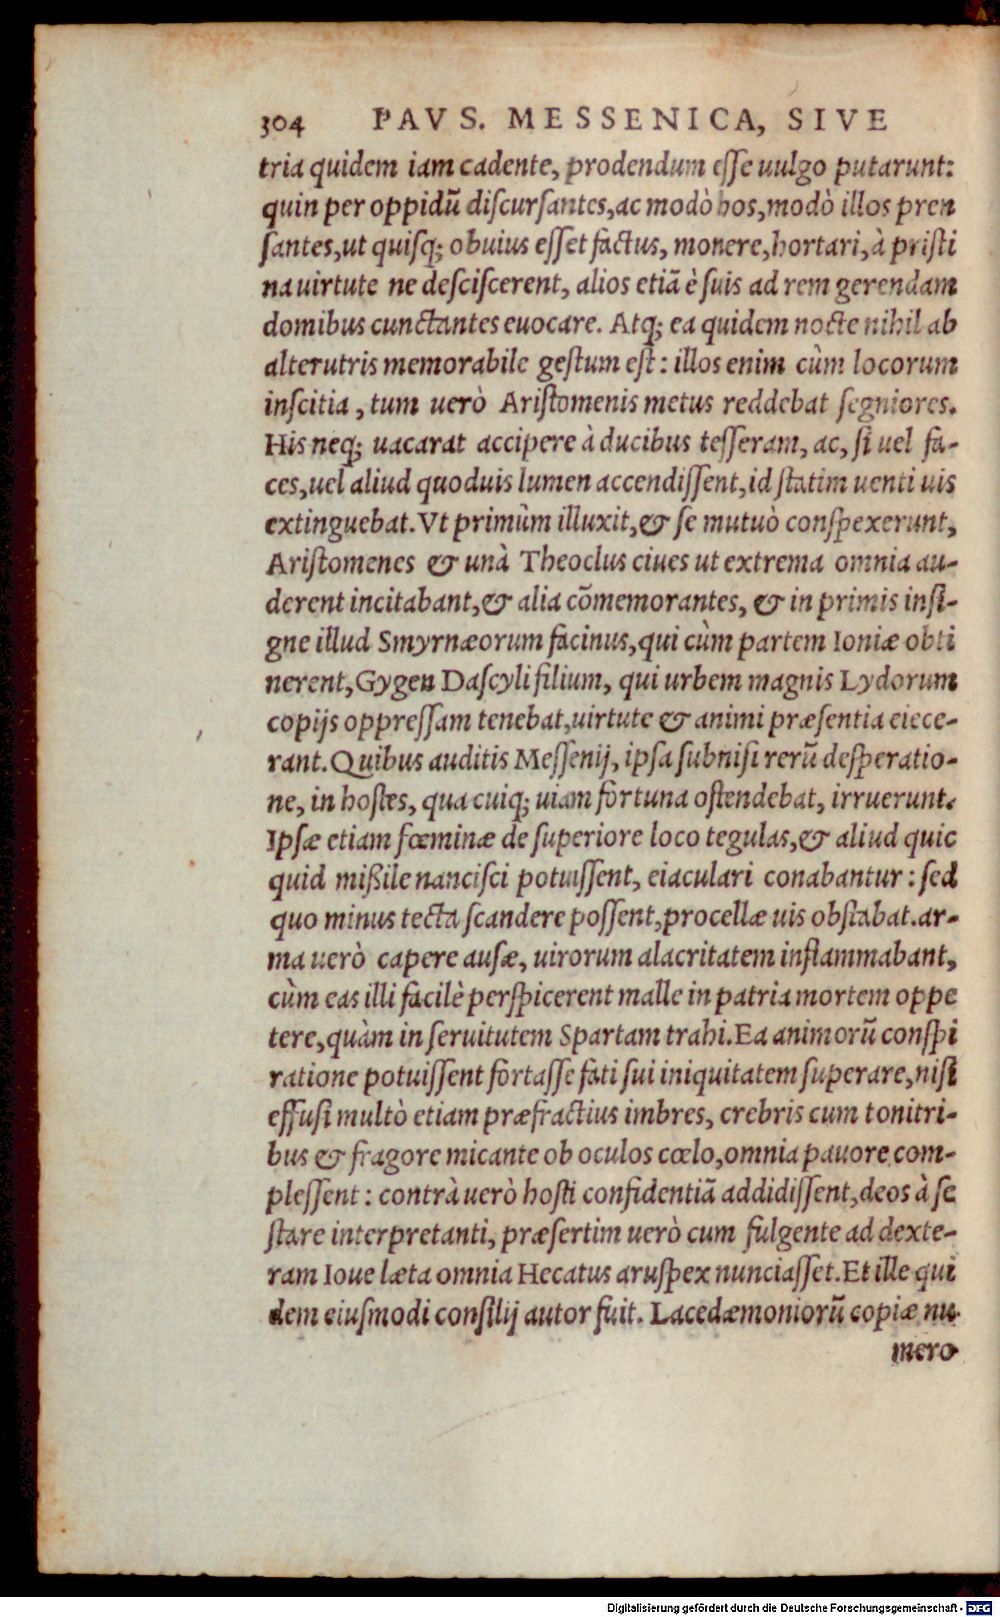 304 PAVS. MESSENICA, SIVE
tria quidem iam cadente, prodendum esse uulgo putarunt:
quin per oppidū discursantes, ac modò hos, modò illos pren
santes, ut quisq; obuius esset factus, monere, hortari, à pristi
na uirtute ne desciscerent, alios etiā è suis ad rem gerendam
domibus cunctantes euocare. Atq; ea quidem nocte nihil ab
alterutris memorabile gestum est: illos enim cùm locorum
inscitia, tum uerò Aristomenis metus reddebat segniores.
His neq; uacarat accipere à ducibus tesseram, ac, si uel fa-
ces, uel aliud quoduis lumen accendissent, id statim uenti uis
extinguebat. Vt primùm illuxit, & se mutuò conspexerunt,
Aristomenes & unà Theoclus ciues ut extrema omnia au-
derent incitabant, & alia cōmemorantes, & in primis insi-
gne illud Smyrnæorum facinus, qui cùm partem Ioniæ obti
nerent, Gygen Dascyli filium, qui urbem magnis Lydorum
copijs oppressam tenebat, uirtute & animi præsentia eiece-
rant. Quibus auditis Messenij, ipsa subnisi rerū desperatio-
ne, in hostes, qua cuiq; uiam fortuna ostendebat, irruerunt.
Ipsæ etiam fœminæ de superiore loco tegulas, & aliud quic
quid mißile nancisci potuissent, eiaculari conabantur: sed
quo minus tecta scandere possent, procellæ uis obstabat. ar-
ma uerò capere ausæ, uirorum alacritatem inflammabant,
cùm eas illi facilè perspicerent malle in patria mortem oppe
tere, quàm in seruitutem Spartam trahi. Ea animorū conspi
ratione potuissent fortasse fati sui iniquitatem superare, nisi
effusi multò etiam præfractius imbres, crebris cum tonitri-
bus & fragore micante ob oculos cœlo, omnia pauore com-
plessent: contrà uerò hosti confidentiā addidissent, deos à se
stare interpretanti, præsertim uerò cum fulgente ad dexte-
ram Ioue læta omnia Hecatus aruspex nunciasset. Et ille qui
dem eiusmodi consilij autor fuit. Lacedæmoniorū copiæ nu-
mero
Digitalisierung gefördert durch die Deutsche Forschungsgemeinschaft - DFG